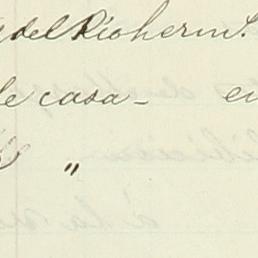 del Rio herm.
le casa - en
"